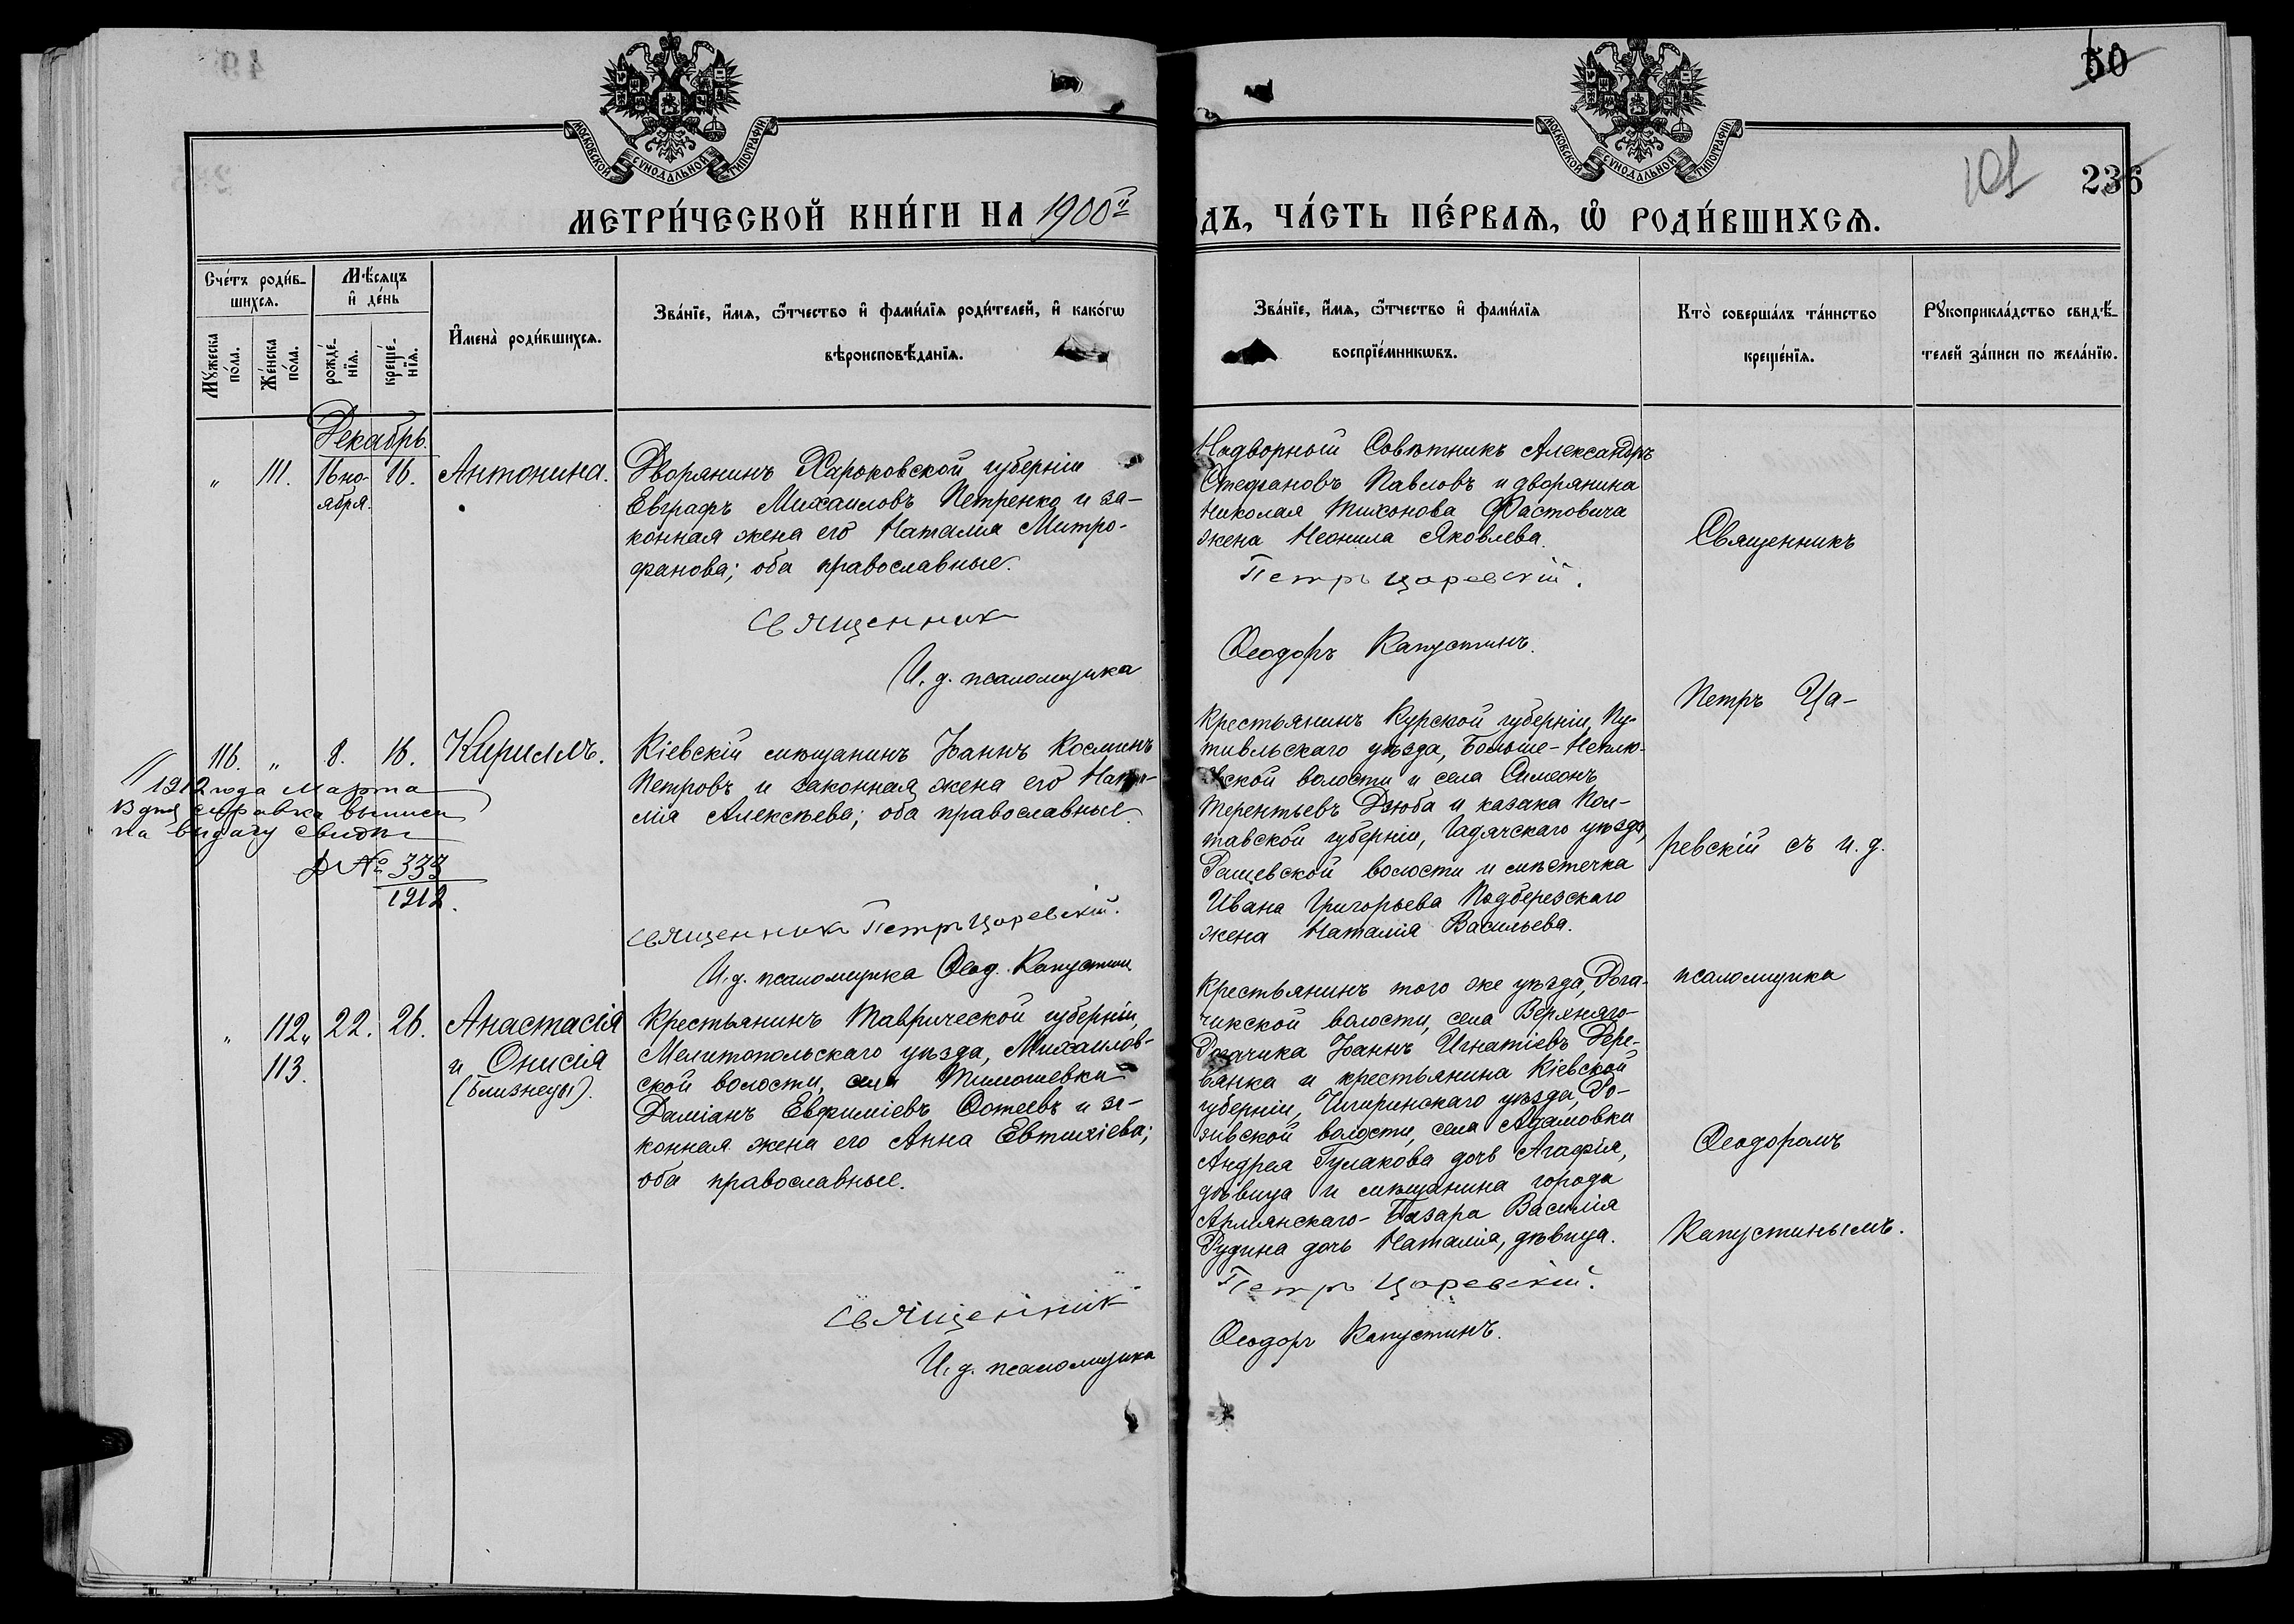 50
101
236
МОСКОВСКОЙ СУНОДАЛЬНОЙ ТИПОГРАФІИ
МОСКОВСКОЙ СУНОДАЛЬНОЙ ТИПОГРАФІИ
МЕТРИ́ЧЕСКОЙ КНИ́ГИ НА 1900й
ДЪ, ЧА́СТЬ ПЕ́РВАѦ, Ѡ҆ РОДИ́ВШИХСѦ.
Сче́тъ роди́в-
шихсѧ.
Мѣ́сѧцъ
и҆ де́нь
Мꙋ́жеска
по́ла.
Же́нска
по́ла.
рожде́-
нїѧ.
креще́-
нїѧ.
И҆мена̀ роди́вшихсѧ.
Зва́нїе, и҆́мѧ, ѻ҆́тчество и҆ фами́лїѧ роди́телей, и҆ како́гѡ
вѣроисповѣ́данїѧ.
Зва́нїе, и҆́мѧ, ѻ҆́тчество и҆ фами́лїѧ
воспрїе́мникѡвъ.
Кто̀ соверша́лъ та́инство
креще́нїѧ.
Рꙋкоприкла́дство свидѣ́-
телей за́писи по жела́нїю.
Декабрь.
„ 111. 16 но-
ября.
16. Антонина.
Дворянинъ Харьковской губерніи
Евграфъ Михаиловъ Петренко и за-
конная жена его Наталія Митро-
фанова; оба православные.
Священник
И. д. псаломщика
Надворный Совѣтникъ Александръ
Стефановъ Павловъ и дворянина
Николая Тихонова Фастовича
жена Неонила Яковлева.
Петръ Царевскій.
Ѳеодоръ Капустинъ.
116. „ 8. 16. Кириллъ.
1912 года Марта
13 дня справка выписи
на выдачу свидѣт
№ 333
1912.
Кіевскій мѣщанинъ Іоаннъ Косминъ
Петровъ и законная жена его Ната-
лія Алексѣева; оба православные.
Священникъ Петръ Царевскій.
И. д. псаломщика Ѳеод. Капустин
Крестьянинъ Курской губерніи, Пу-
тивльскаго уѣзда, Больше-Неплю-
евской волости и села Симеонъ
Терентьевъ Дзюба и казака Пол-
тавской губерніи, Гадячскаго уѣзда,
Рашевской волости и мѣстечка
Ивана Григорьева Подберезскаго
жена Наталія Васильева.
„ 112„ 22. 26. Анастасія
113. и Онисія
(близнецы).
Крестьянинъ Таврической губерніи,
Мелитопольскаго уѣзда, Михаилов-
ской волости, села Тимошевки
Даміанъ Евфиміевъ Фотеевъ и за-
конная жена его Анна Евтихіева;
оба православные.
Священник
И. д. псаломщика
Крестьянинъ того же уѣзда, Рога-
чикской волости, села Верхняго-
Рогачика Іоаннъ Игнатіевъ Дере-
вянка и крестьянина Кіевской
губерніи, Чигиринскаго уѣзда,
волости, села Адамовки
Андрея Гулакова дочь Агафія,
дѣвица и мѣщанина города
Армянскаго-Базара Василія
Рудина дочь Наталія, дѣвица.
Петръ Царевскій.
Ѳеодоръ Капустинъ.
Священникъ
Петръ Ца-
ревскій съ и. д.
псаломщика
Ѳеодоромъ
Капустинымъ.